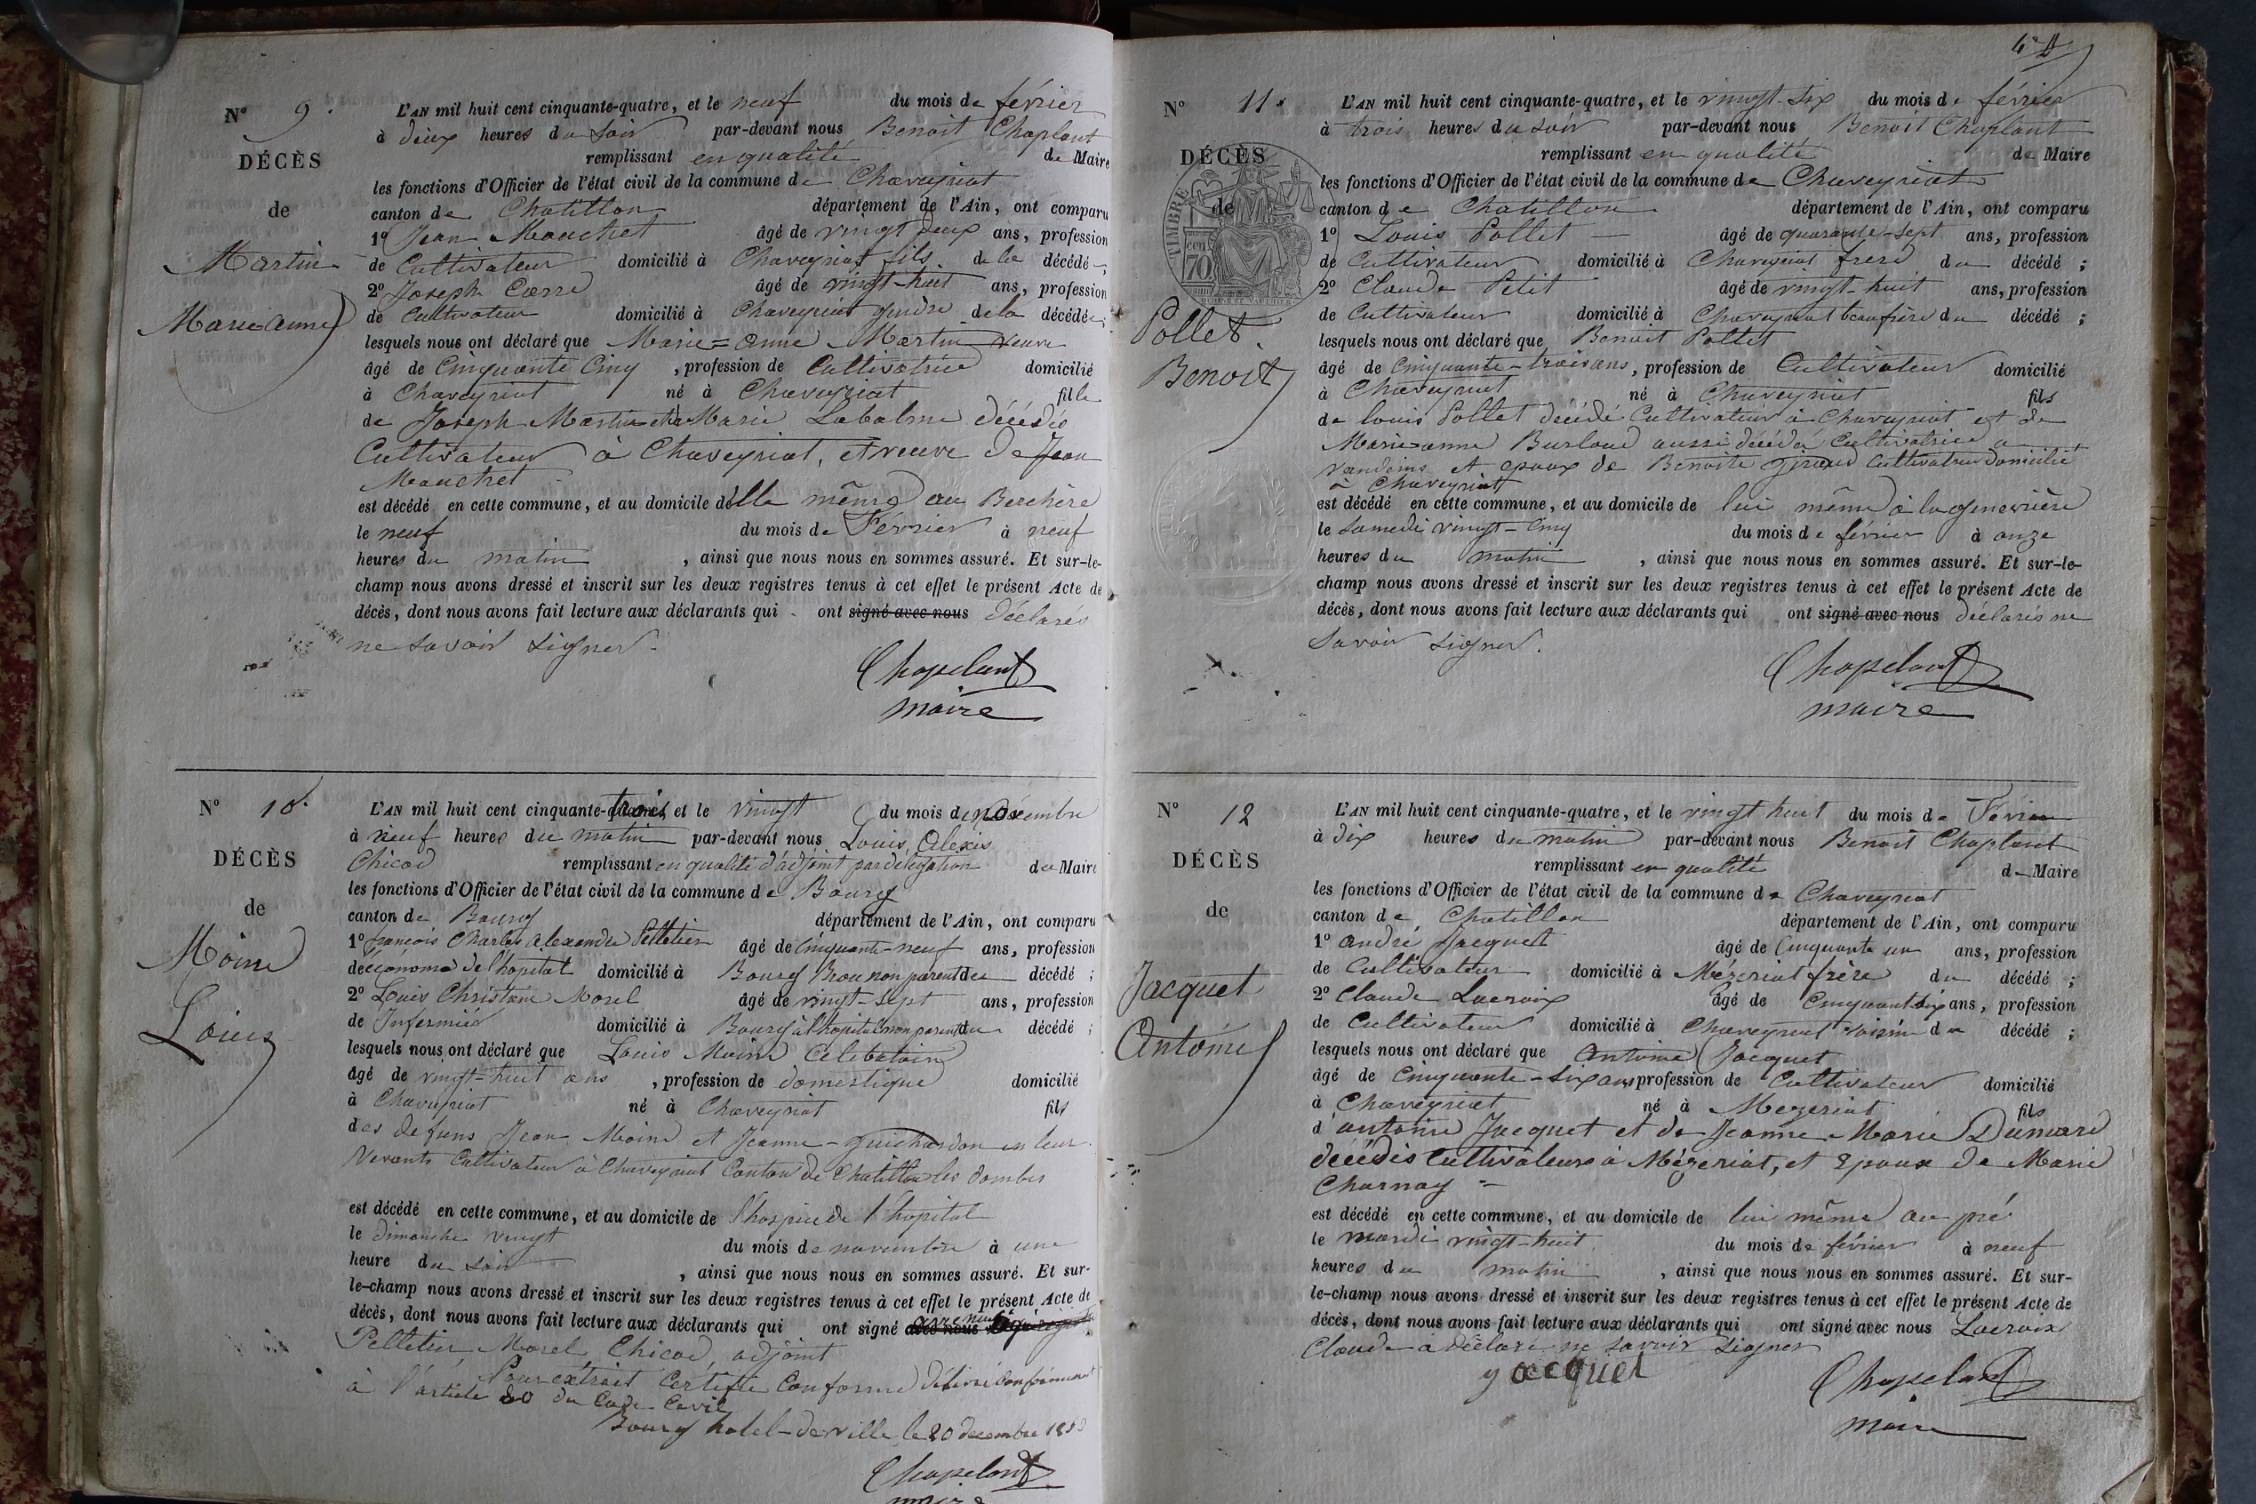 N° 9.
DÉCÈS
de
Martin
Marie anne
L'AN mil huit cent cinquante-quatre, et le neuf du mois de février
à deux heures du soir par-devant nous Benoit Chaplant
remplissant en qualité de Maire
les fonctions d'Officier de l'état civil de la commune de Chaveyriat
canton de Chatillon département de l'Ain, ont comparu
1° Jean Mouchet âgé de vingt deux ans, profession
de Cultivateur domicilié à Chaveyriat fils de la décédée ;
2° Joseph Carre âgé de vingt-huit ans, profession
de Cultivateur domicilié à Chaveyriat gendre de la décédée ;
lesquels nous ont déclaré que Marie=anne Martin veuve
âgé de Cinquante Cinq , profession de Cultivatrice domicilié
à Chaveyriat né à Chaveyriat fille
de Joseph Martin et de Marie Labalme décédés
Cultivateur à Chaveyriat, et veuve de Jean
Mouchet
est décédé en cette commune, et au domicile d'elle même au Berchère
le neuf du mois de Février à neuf
heures du matin , ainsi que nous nous en sommes assuré. Et sur-le-
champ nous avons dressé et inscrit sur les deux registres tenus à cet effet le présent Acte de
décès, dont nous avons fait lecture aux déclarants qui ont signé avec nous déclarés
ne savoir signer.
Chapelant
maire
N° 10.
DÉCÈS
de
Moine
Louis
L'AN mil huit cent cinquante-trois et le vingt du mois de novembre
à neuf heures du matin par-devant nous Louis Alexis
Chicod remplissant en qualité d'adjoint par délégation du Maire
les fonctions d'Officier de l'état civil de la commune de Bourg
canton de Bourg département de l'Ain, ont comparu
1° françois Charles alexandre Pelletier âgé de Cinquante-neuf ans, profession
de économe de l'hopital domicilié à Bourg Brou non parent du décédé ;
2° Louis Christian Morel âgé de vingt-sept ans, profession
de Infermier domicilié à Bourg à l'hopital non parent du décédé ;
lesquels nous ont déclaré que Louis Moine Célibataire
âgé de vingt-huit ans , profession de domestique domicilié
à Chaveyriat né à Chaveyriat fils
des defuns Jean Moine et Jeanne-guichardon en leur
vivants Cultivateur à Chaveyriat Canton de Chatillon les dombes
est décédé en cette commune, et au domicile de l'hospice de l'hopital
le dimanche vingt du mois de novembre à une
heure du soir , ainsi que nous nous en sommes assuré. Et sur-
le-champ nous avons dressé et inscrit sur les deux registres tenus à cet effet le présent Acte de
décès, dont nous avons fait lecture aux déclarants qui ont signé avec nous
Pelletier Morel Chicod, adjoint
Pour extrait Certifié Conforme Délivré Conformément
à l'article 80 du Code Civil
Bourg hotel-de ville, le 20 decembre 1853
Chapelant
maire
N° 11.
DÉCÈS
de
TIMBRE
70
Pollet.
Benoit
L'AN mil huit cent cinquante-quatre, et le vingt-six du mois de février
à trois heures du soir par-devant nous Benoit Chaplant
remplissant en qualité de Maire
les fonctions d'Officier de l'état civil de la commune de Chaveyriat
canton de Chatillon département de l'Ain, ont comparu
1° Louis Pollet âgé de quarante-sept ans, profession
de Cultivateur domicilié à Chaveyriat frere du décédé ;
2° Claude Petit âgé de vingt-huit ans, profession
de Cultivateur domicilié à Chaveyriat beaufrère du décédé ;
lesquels nous ont déclaré que Benoit Pollet
âgé de Cinquante-trois ans, profession de Cultivateur domicilié
à Chaveyriat né à Chaveyriat fils
de louis Pollet décédé Cultivateur à Chaveyriat et de
Marie=anne Burloud aussi décédé Cultivatrice a
Vandeins et epoux de Benoite Giraud Cultivateur domicilié
à Chaveyriat
est décédé en cette commune, et au domicile de lui même à la genevrière
le samedi vingt-cinq du mois de février à onze
heures du matin , ainsi que nous nous en sommes assuré. Et sur-le-
champ nous avons dressé et inscrit sur les deux registres tenus à cet effet le présent Acte de
décès, dont nous avons fait lecture aux déclarants qui ont signé avec nous déclarés ne
savoir signer.
Chapelant
maire
N° 12
DÉCÈS
de
Jacquet
Antoine
L'AN mil huit cent cinquante-quatre, et le vingt huit du mois de Février
à dix heures du matin par-devant nous Benoit Chaplant
remplissant en qualité de Maire
les fonctions d'Officier de l'état civil de la commune de Chaveyriat
canton de Chatillon département de l'Ain, ont comparu
1° andré Jacquet âgé de Cinquante un ans, profession
de Cultivateur domicilié à Mézeriat frère du décédé ;
2° Claude Lacroix âgé de Cinquante six ans, profession
de Cultivateur domicilié à Chaveyriat voisin du décédé ;
lesquels nous ont déclaré que Antoine Jacquet
âgé de Cinquante-six ans profession de Cultivateur domicilié
à Chaveyriat né à Mezeriat fils
d'antoine Jacquet et de Jeanne-Marie Dumare
décédés Cultivateurs à Mézeriat, et Epoux de Marie
Charnay
est décédé en cette commune, et au domicile de lui même au pré
le mardi vingt-huit du mois de février à neuf
heures du matin , ainsi que nous nous en sommes assuré. Et sur-
le-champ nous avons dressé et inscrit sur les deux registres tenus à cet effet le présent Acte de
décès, dont nous avons fait lecture aux déclarants qui ont signé avec nous Lacroix
Claude à déclaré ne savoir signer
yacquet
Chapelant
maire